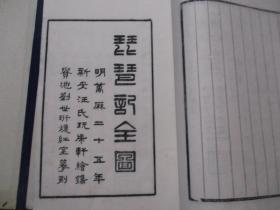 琵琶記全圖
明萬曆二十五年
新安汪氏玩虎軒繪鐫
貴池劉世珩煖紅室摹刻